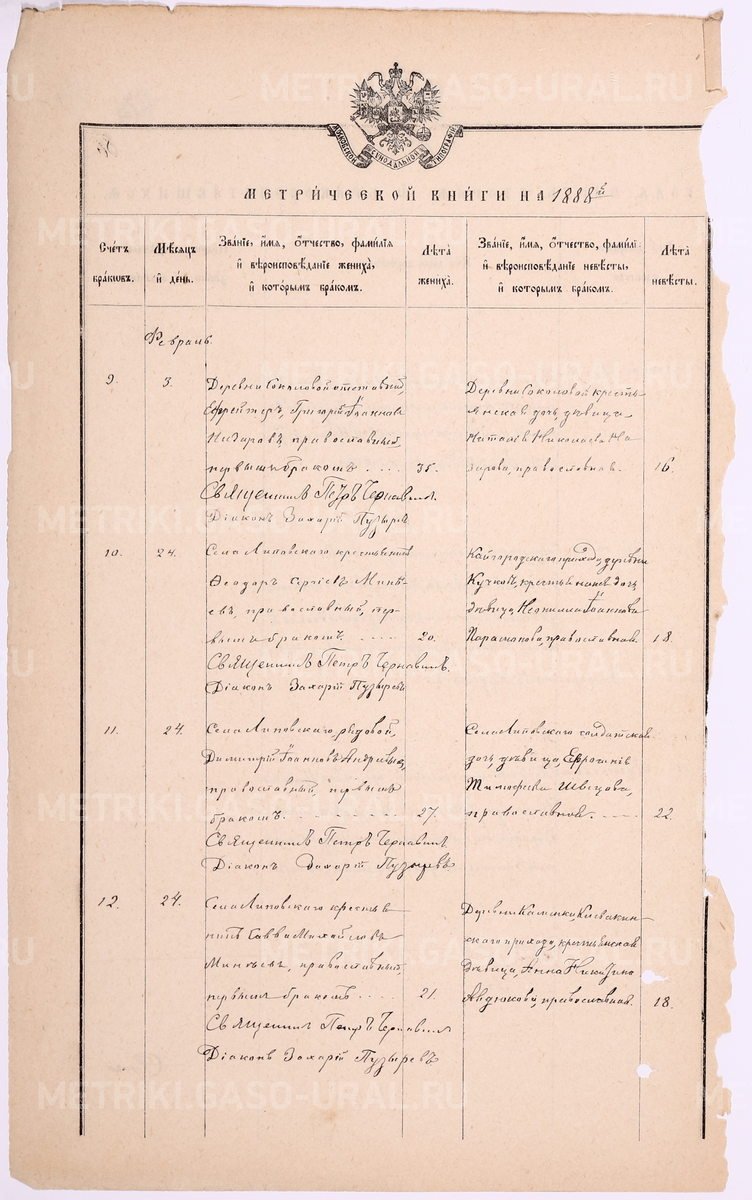 МОСКОВСКОЙ СУНОДАЛЬНОЙ ТИПОГРАФІИ
МЕТРИ́ЧЕСКОЙ КНИ́ГИ НА 1888й
Сче́тъ бра́ковъ.
Мѣ́сяцъ и де́нь.
Зва́ніе, и́мя, о́тчество, фами́лія и вѣроисповѣ́даніе жениха̀, и кото́рымъ бра́комъ.
Лѣ́та жениха̀.
Зва́ніе, и́мя, о́тчество, фами́лі: и вѣроисповѣ́даніе невѣ́сты, и кото́рымъ бра́комъ.
Лѣ́та невѣ́сты.
Февраль.
9.
3.
Деревни Соколовой отставный
Ефрейтеръ, Григорій Іоанновъ
Назаровъ православный,
первымъ бракомъ . . . .
35.
Священникъ Петръ Чернавинъ
Діаконъ Захарій Пузыревъ
Деревни Соколовой кресть-
янская дочь, дѣвица
Наталія Николаева На
зарова, православная.
16.
10.
24.
Села Липовскаго крестьянинъ
Ѳеодоръ Сергіевъ Минѣ-
евъ, православный, пер-
вымъ бракомъ. . . . .
20.
Священникъ Петръ Чернавинъ.
Діаконъ Захарій Пузыревъ
Кайгородскаго прихода, деревни
крестьянская дочь
дѣвица, Неонилла Іоаннова
православная.
18.
11.
24.
Села Липовскаго рядовой,
Димитрій Іоанновъ
православный, первымъ
бракомъ.
27.
Священникъ Петръ Чернавинъ
Діаконъ Захарій Пузыревъ
Села Липовскаго солдатская
дочь, дѣвица,
Тимофеева Швецова,
православная.
22.
12.
24.
Села Липовскаго крестья
нинъ Савва Михайловъ
Минѣевъ, православный,
первымъ бракомъ . . . .
21.
Священникъ Петръ Чернавинъ
Діаконъ Захарій Пузыревъ
Деревни
скаго прихода, крестьянская
дѣвица, Анна Никитина
Авдюкова, православная.
18.
METRIKI.GASO-URAL.RU